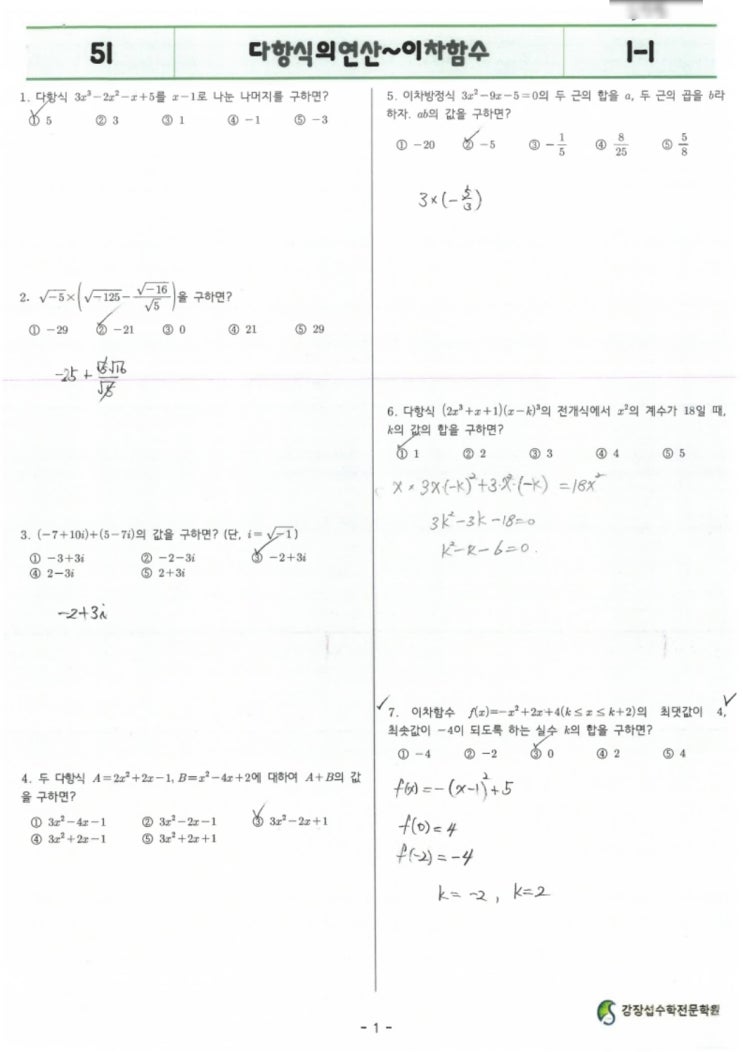 51 다항식의연산~이차함수 1-1
1. 다항식 3x³−2x²−x+5를 x−1로 나눈 나머지를 구하면?
① 5 ② 3 ③ 1 ④ −1 ⑤ −3
2. √−5×(√−125−√−16/√5)을 구하면?
① −29 ② −21 ③ 0 ④ 21 ⑤ 29
-25 + √5√16/√5
3. (−7+10i)+(5−7i)의 값을 구하면? (단, i=√−1)
① −3+3i ② −2−3i ③ −2+3i
④ 2−3i ⑤ 2+3i
-2+3i
4. 두 다항식 A=2x²+2x−1, B=x²−4x+2에 대하여 A+B의 값
을 구하면?
① 3x²−4x−1 ② 3x²−2x−1 ③ 3x²−2x+1
④ 3x²+2x−1 ⑤ 3x²+2x+1
5. 이차방정식 3x²−9x−5=0의 두 근의 합을 a, 두 근의 곱을 b라
하자. ab의 값을 구하면?
① −20 ② −5 ③ −1/5 ④ 8/25 ⑤ 5/8
3×(-5/3)
6. 다항식 (2x³+x+1)(x−k)³의 전개식에서 x²의 계수가 18일 때,
k의 값의 합을 구하면?
① 1 ② 2 ③ 3 ④ 4 ⑤ 5
x × 3x(-k)²+3·x²·(-k) =18x²
3k²-3k-18=0
k²-k-6=0.
7. 이차함수 f(x)=−x²+2x+4(k≤x≤k+2)의 최댓값이 4,
최솟값이 −4이 되도록 하는 실수 k의 합을 구하면?
① −4 ② −2 ③ 0 ④ 2 ⑤ 4
f(x)=-(x-1)²+5
f(0)=4
f(-2)=-4
k=-2, k=2
강장섭수학전문학원
- 1 -